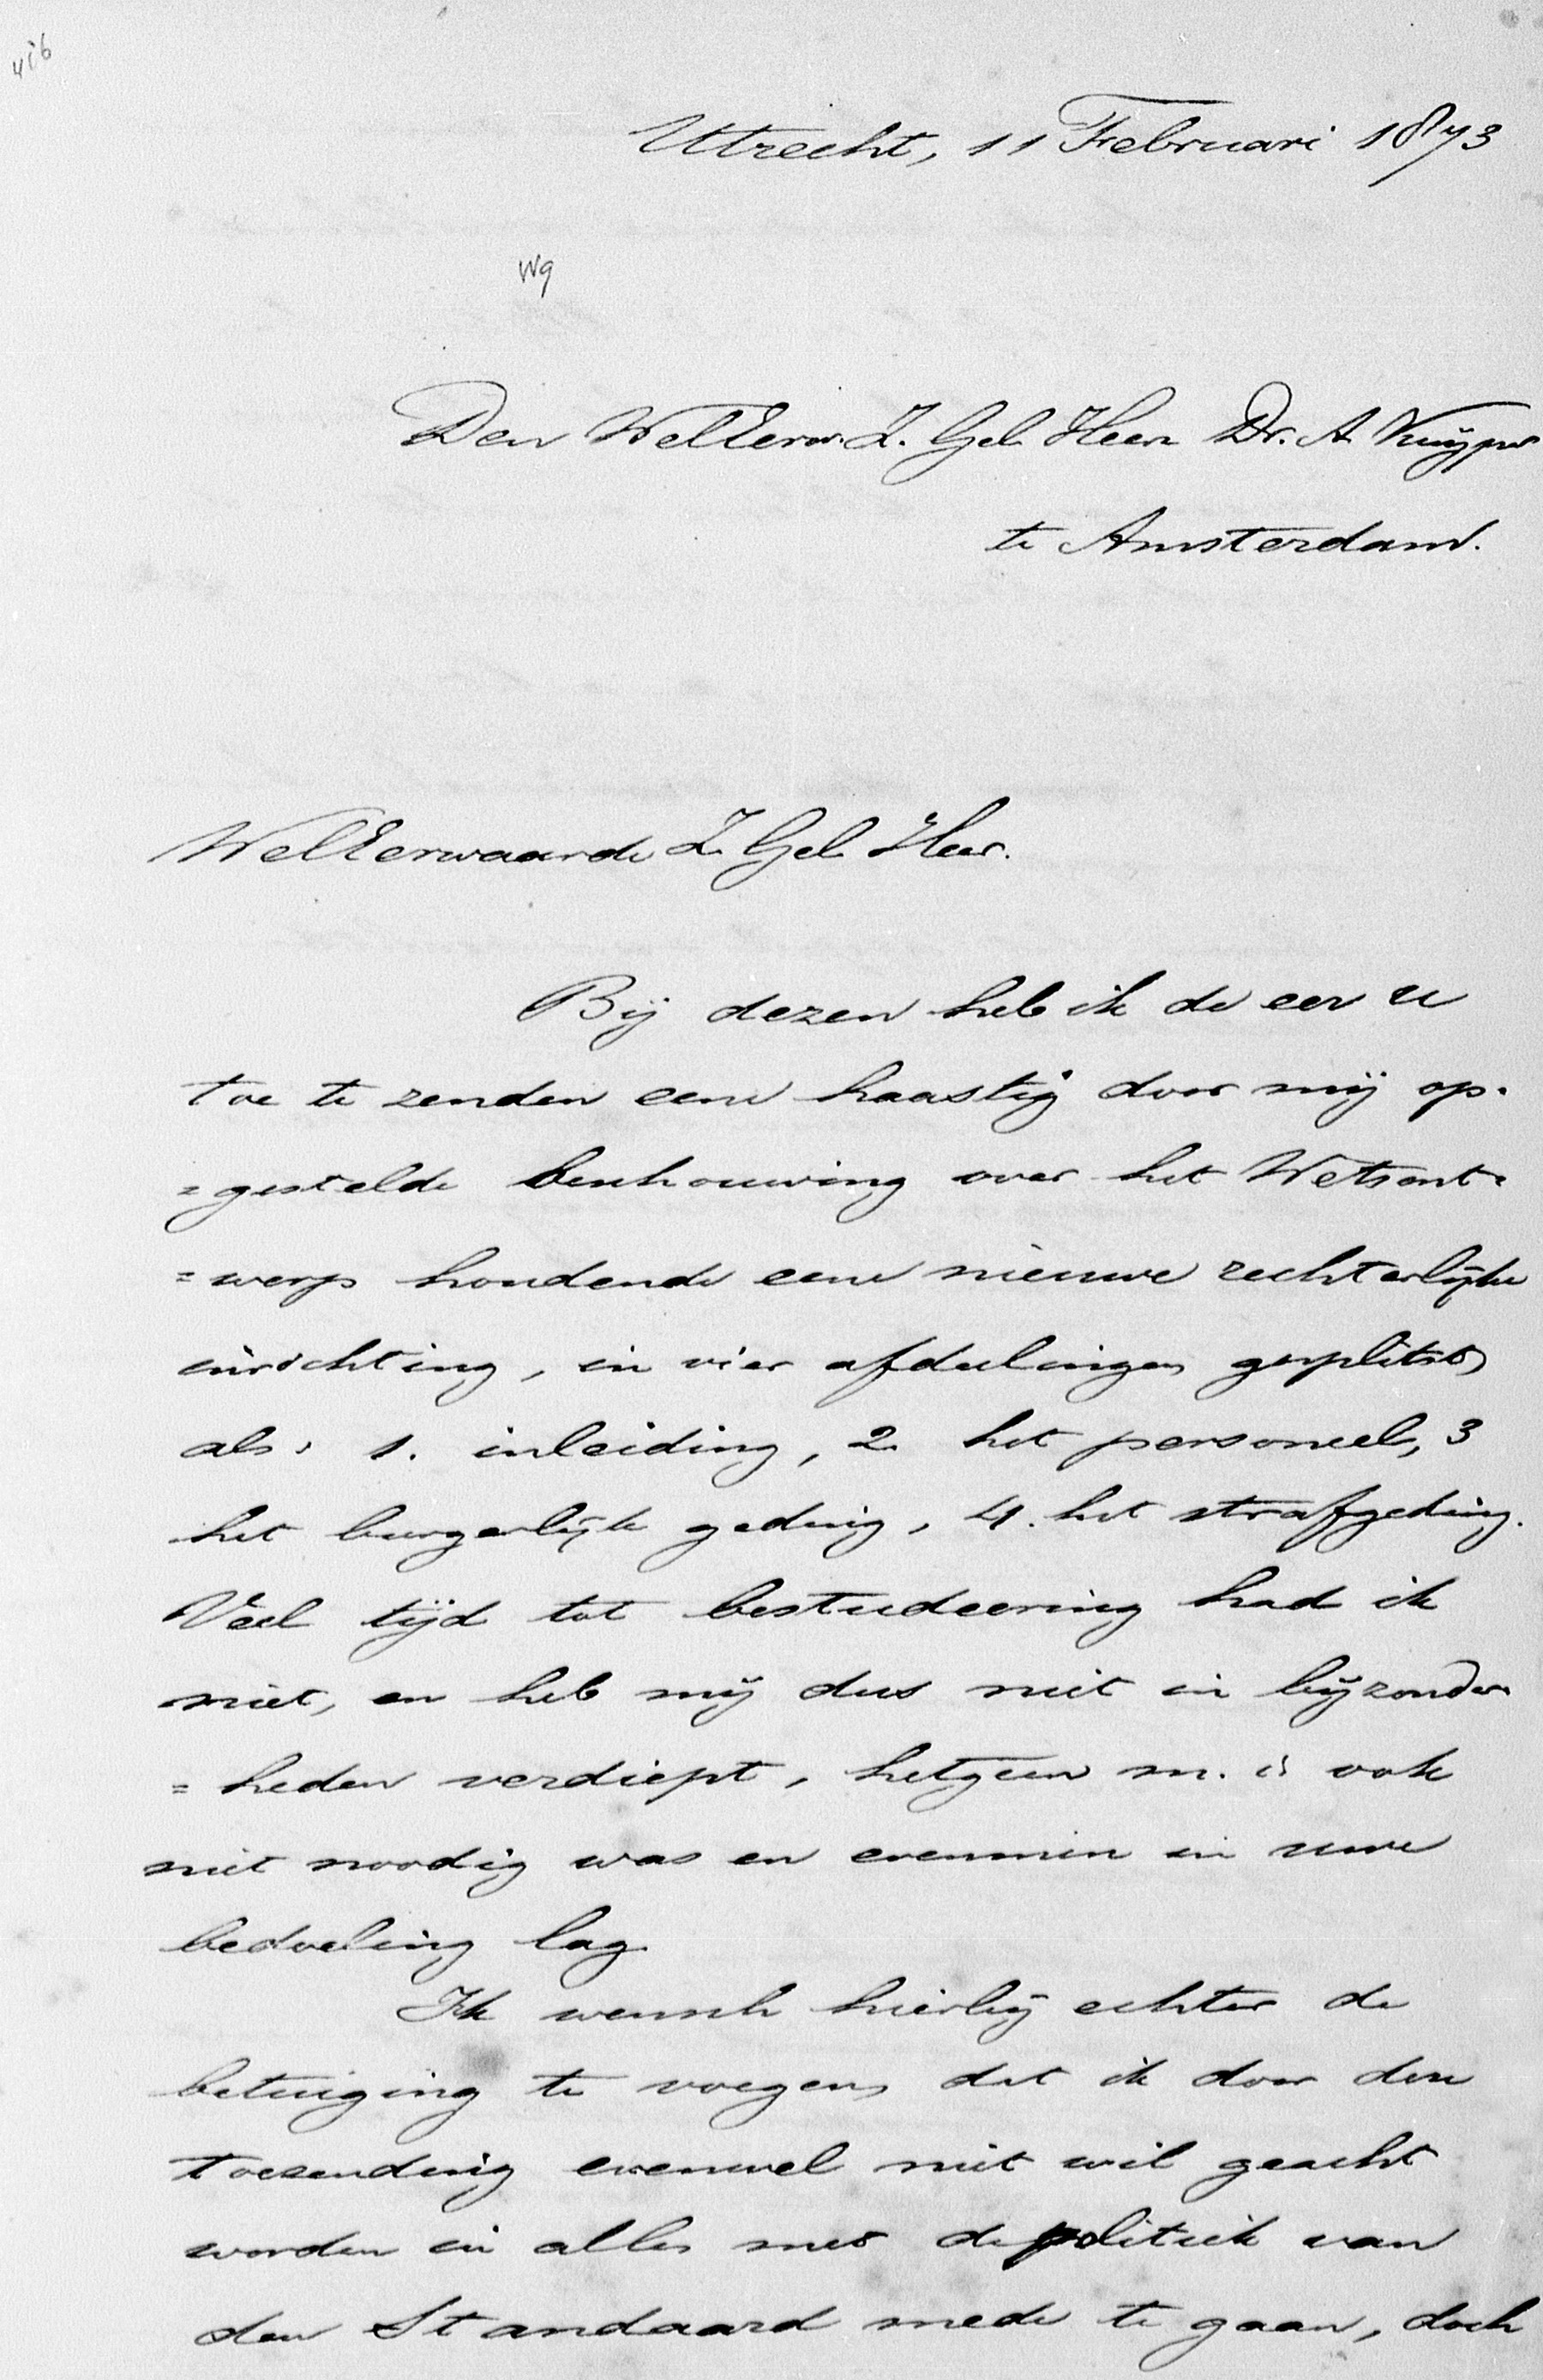 416
Uttrecht, 11 Februari 1873
Wg
Den WelEerw. Z. Gel. Heer Dr. A. Kuÿper
te Amsterdam.
WelEerwaarde Z. Gel. Heer.
Bij dezen heb ik de eer U
toe te zenden eene haastig door mij op-
=gestelde beschouwing over het Wetsont=
=werp houdende eene nieuwe rechterlijke
inrichting, in vier afdeelingen gesplitst,
als, 1. inleiding, 2. het personeel, 3
het burgerlijk geding, 4. het strafgeding.
Veel tijd tot bestudeering had ik
niet, en heb mij dus niet in bijzonder
=heden verdiept, hetgeen m. i. ook
niet noodig was en evenmin in uwe
bedoeling lag.
Ik wensch hierbij echter de
betuiging te voegen, dat ik door deze
toezending evenwel niet wil geacht
worden in alles met de politiek van
den Standaard mede te gaan, doch